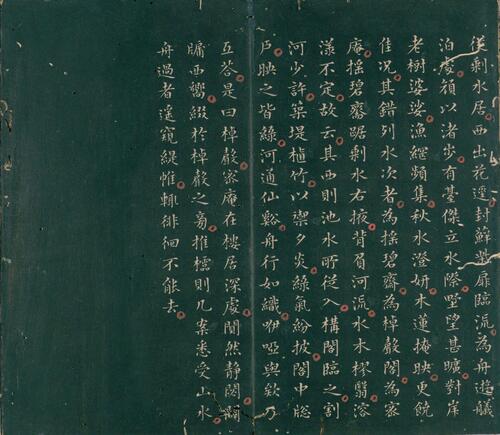 從剩水居西出花逕封蘚叢扉臨流為舟遊艤
泊處頻以渚岕有臺傑立水際墅望甚曠對岸
老樹婆娑漁緵頻集秋水澄妍木蓮掩映更饒
佳況其錯列水次者為搖碧齋為棹歌閣為宻
庵搖碧齋踞剩水右掖背負河流水木樛翳溶
漾不定故云其西則池水所從入構閣臨之割
河少許築堤植竹以禦夕炎綠氣紛披閣中牕
戶映之皆綠河通仙谿舟行如織咿啞與欸乃
互荅是曰棹歌宻庵在樓居深處闃然靜閟闢
牖西嚮綴於棹歌之旁推櫺則几案悉受山水
舟過者遙窺緹帷輒徘徊不能去